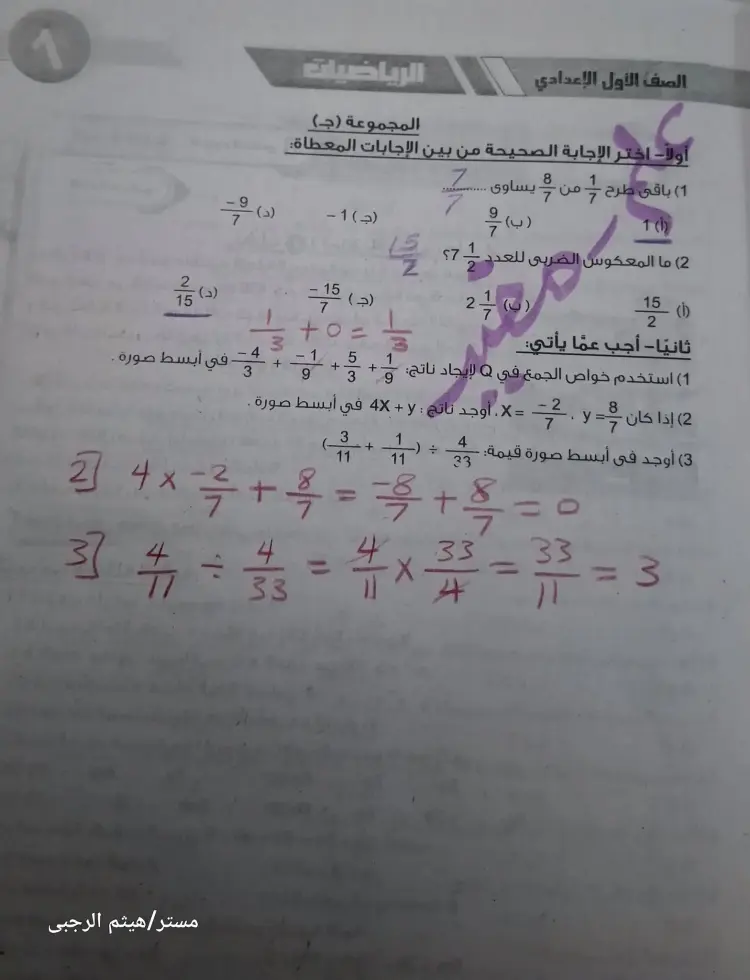 1
الصف الأول الإعدادي
الرياضيات
المجموعة (جـ)
أولاً- اختر الإجابة الصحيحة من بين الإجابات المعطاة:
1) باقي طرح 1/7 من 8/7 يساوى .......... 7/7
(أ) 1 (ب) 9/7 (جـ) 1 - (د) -9/7
2) ما المعكوس الضربي للعدد 7 1/2 ؟ 15/2
(أ) 15/2 (ب) 2 1/7 (جـ) -15/7 (د) 2/15
1/3 + 0 = 1/3
ثانيًا- أجب عمًا يأتي:
1) استخدم خواص الجمع في Q لإيجاد ناتج: 1/9 + 5/3 + -1/9 + -4/3 في أبسط صورة .
2) إذا كان y = 8/7 ، X = -2/7 ، أوجد ناتج : 4X + y في أبسط صورة .
3) أوجد في أبسط صورة قيمة: 4/33 ÷ (1/11 + 3/11)
2] 4 × -2/7 + 8/7 = -8/7 + 8/7 = 0
3] 4/11 ÷ 4/33 = 4/11 × 33/4 = 33/11 = 3
مستر/هيثم الرجبى